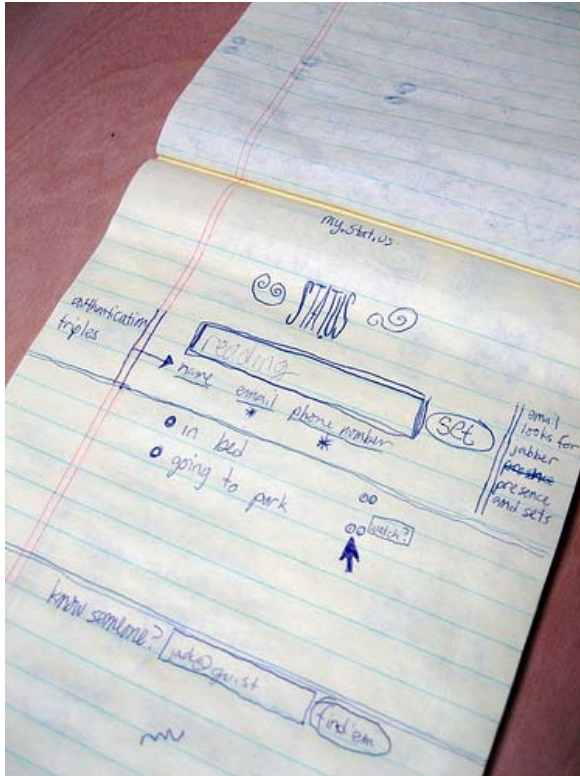 my.stat.us
STATUS
authentication
triples
reading
set
name email phone number
* *
email
looks for
jabber
presence
and sets
in bed
going to park
watch?
know someone?
find'em